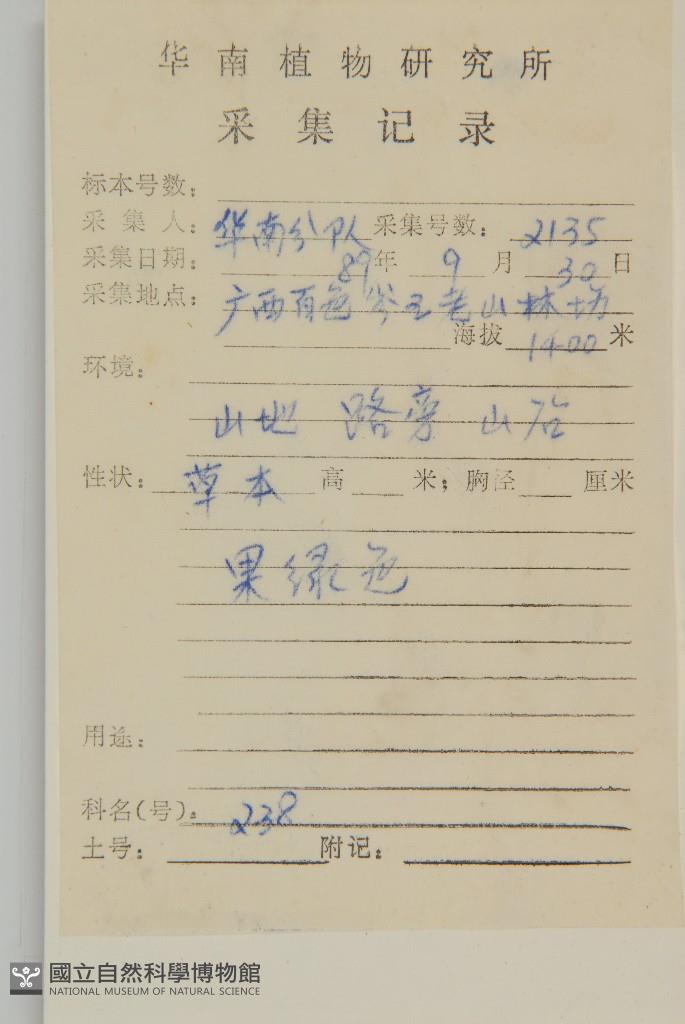 华南植物研究所
采集记录
标本号数：
采集人：华南分队 采集号数：2135
采集日期：89年 9 月 30 日
采集地点：广西百色岑王老山林场
海拔 1400 米
环境：
山地 路旁 山沿
性状：草本 高 米；胸泾 厘米
果绿色
用途：
科名(号)：238
土号： 附记：
國立自然科學博物館
NATIONAL MUSEUM OF NATURAL SCIENCE